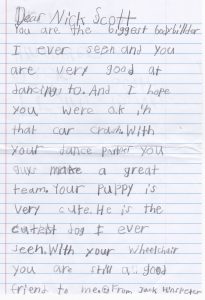 Dear Nick Scott
You are the biggest bodybuilder
I ever seen and you
are very good at
dancing to. And I hope
you were ok in
that car crash. With
your dance partner you
guys make a great
team. Your puppy is
very cute. He is the
cutest dog I ever
seen. With your wheelchair
you are still a good
friend to me. From Jack